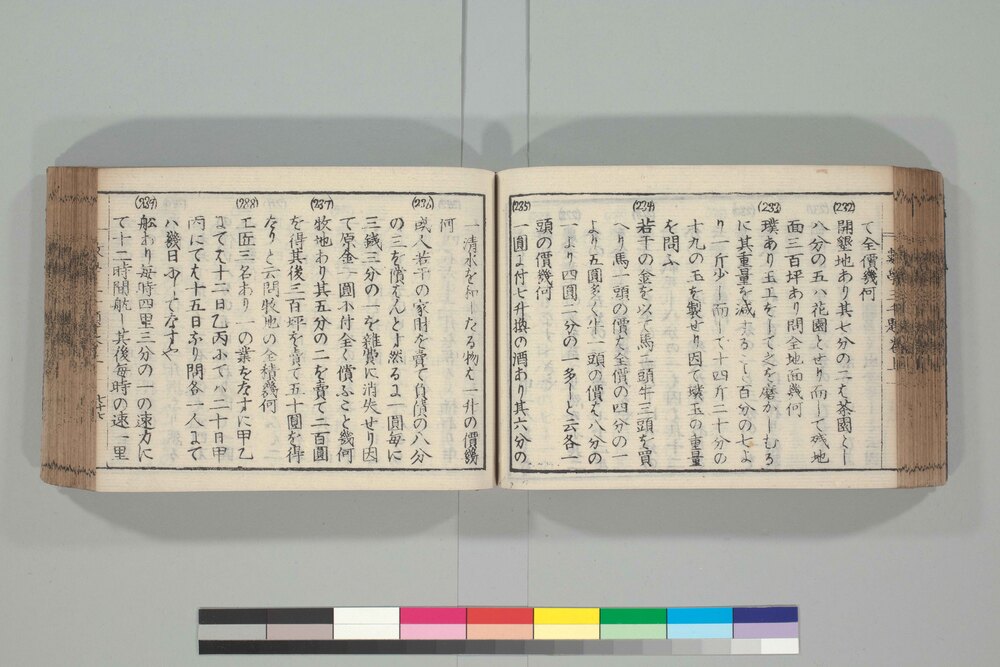 て全價幾何
(232)
開墾地あり其七分の二を茶園とし
八分の五ハ花園とせり而して残地
面三百坪あり問全地面幾何
(233)
璞あり玉工をして之を磨かしむる
に其重量を減まること百分の七よ
り一斤少し而して十四斤二十分の
十九の玉を製せり因て璞玉の重量
を問ふ
(234)
若干の金を以て馬二頭牛三頭を買
へり馬一頭の價を全價の四分の一
より五圓多く牛一頭の價を八分の
一より四圓二分の一多しと云各一
頭の價幾何
(235)
一圓に付七升換の酒あり其六分の
一清水を和したる物を一升の價幾
何
(236)
或人若干の家財を賣て負債の八分
の三を償をんとす然るに一圓毎に
三錢三分の一を雜費に消失せり因
て原金一圓に付金く償ふこと幾何
(237)
牧地あり其五分の二を賣て二百圓
を得其後三百坪を賣て五十圓を得
たりと云問牧地の全積幾何
(238)
工匠三名あり一の業をなすに甲乙
にて十二日乙丙にてハ二十日甲
丙にてハ十五日なり問各一人にて
ハ幾日にしてなすや
(239)
船あり毎時四里三分の一の速力に
て十二時間航し其後毎時の速一里